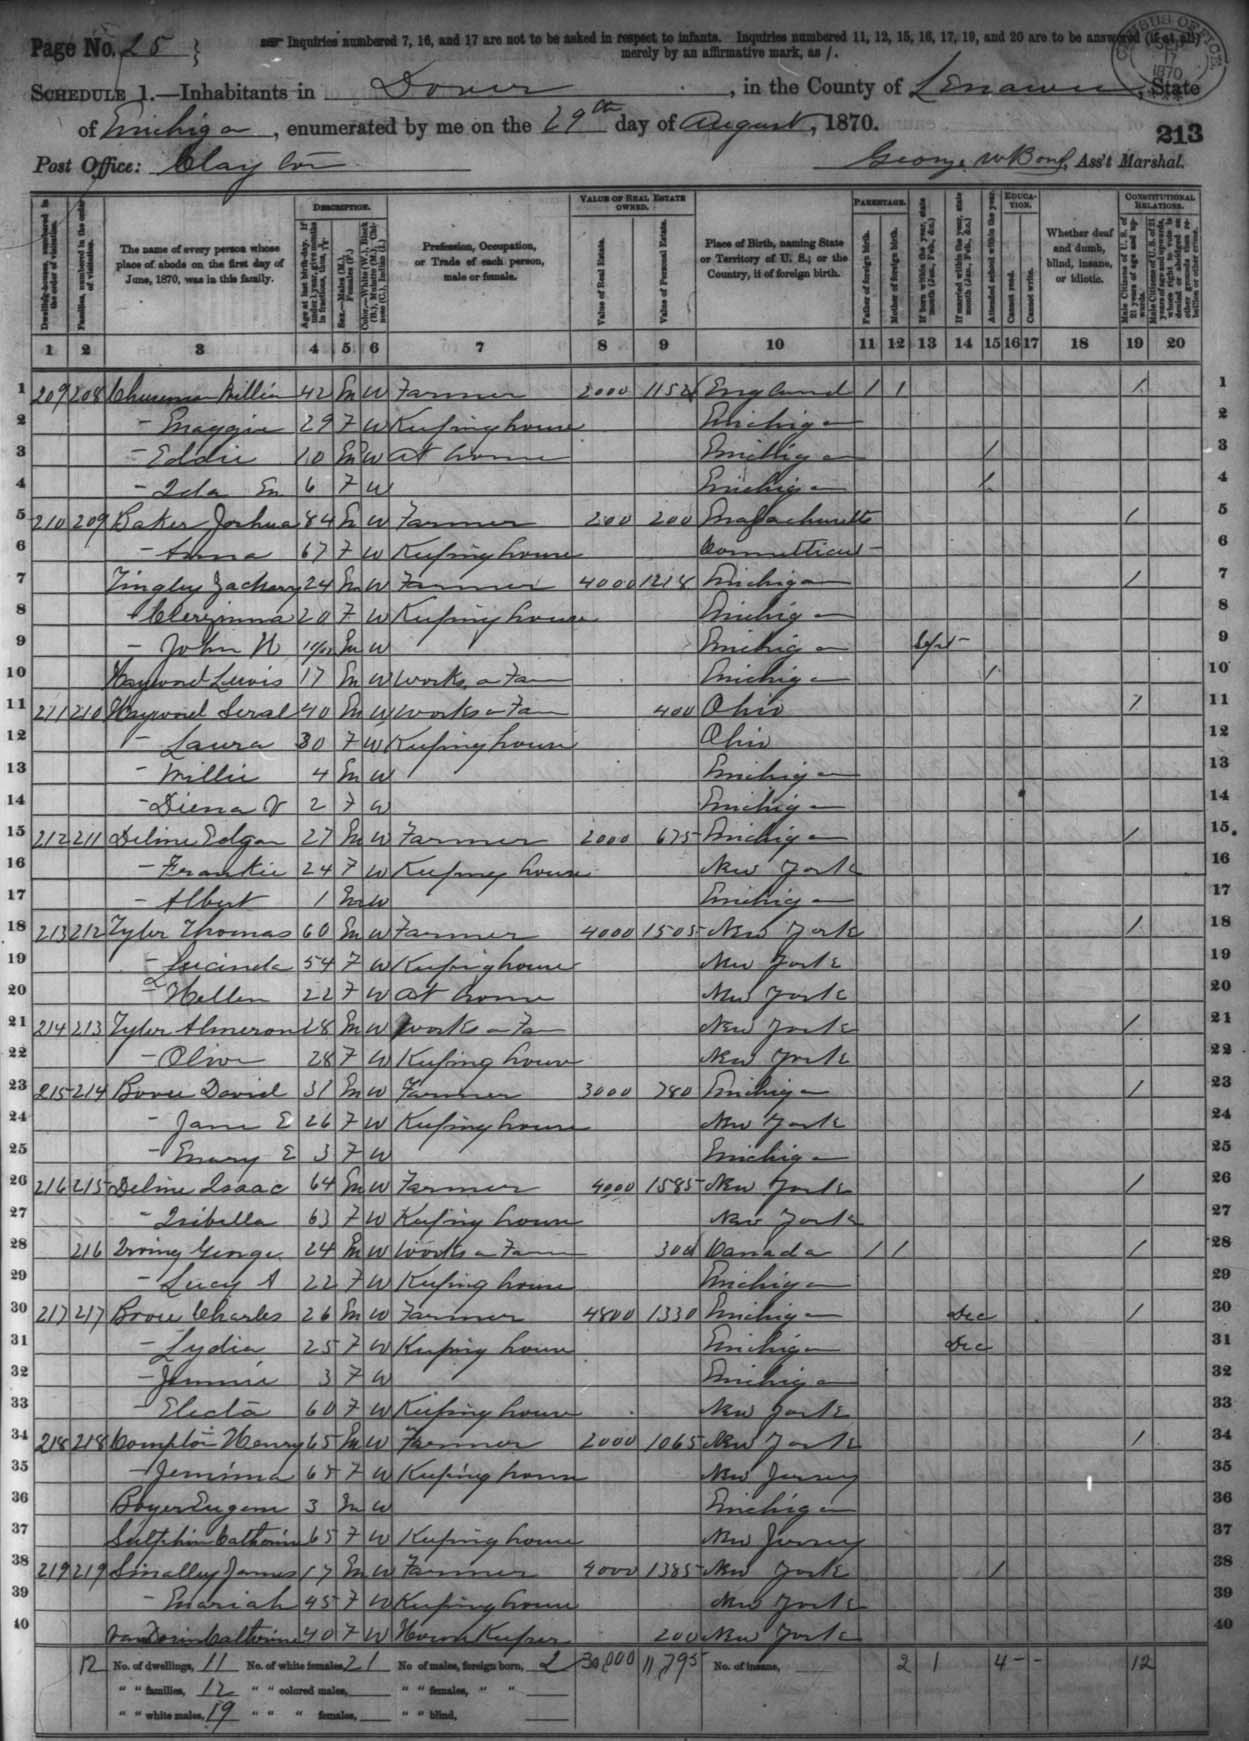 Page No. 25
☞ Inquiries numbered 7, 16, and 17 are not to be asked in respect to infants. Inquiries numbered 11, 12, 15, 16, 17, 19, and 20 are to be answered (if at all)
merely by an affirmative mark, as /.
CENSUS OFFICE 17 1870
SCHEDULE 1.—Inhabitants in Dover, in the County of Lenawee, State
of Michigan, enumerated by me on the 29th day of August, 1870.
213
Post Office: Clayton
George W, Ass't Marshal.
Dwelling-houses, numbered in the order of visitation.
Families, numbered in the order of visitation.
The name of every person whose place of abode on the first day of June, 1870, was in this family.
DESCRIPTION.
Age at last birth-day. If under 1 year, give months in fractions, thus,
Sex.—Males (M.), Females (F.)
Color.—White (W.), Black (B.), Mulatto (M.), Chinese (C.), Indian (I.)
Profession, Occupation, or Trade of each person, male or female.
VALUE OF REAL ESTATE OWNED.
Value of Real Estate.
Value of Personal Estate.
Place of Birth, naming State or Territory of U. S.; or the Country, if of foreign birth.
PARENTAGE.
Father of foreign birth.
Mother of foreign birth.
If born within the year, state month (Jan., Feb., &c.)
If married within the year, state month (Jan., Feb., &c.)
Attended school within the year.
EDUCATION.
Cannot read.
Cannot write.
Whether deaf and dumb, blind, insane, or idiotic.
CONSTITUTIONAL RELATIONS.
Male Citizens of U. S. of 21 years of age and upwards.
Male Citizens of U. S. of 21 years of age and upwards, whose right to vote is denied or abridged on other grounds than rebellion or other crime.
1 2 3 4 5 6 7 8 9 10 11 12 13 14 15 16 17 18 19 20
1 209 208 William 42 M W Farmer 2000 England / / / 1
2 - Maggie 29 F W Keeping house Michigan 2
3 - Eddie 10 M W At home Michigan / 3
4 - Ida M 6 F W Michigan / 4
5 210 209 Baker Joshua 84 M W Farmer 200 200 Massachusetts / 5
6 - Anna 67 F W Keeping house Connecticut 6
7 Tingley Zachary 24 M W Farmer 4000 1218 Michigan / 7
8 - 20 F W Keeping house Michigan 8
9 - John W 11/12 M W Michigan Sept 9
10 Haywood Lewis 17 M W Works on Farm Michigan / 10
11 211 210 Haywood 40 M W Works on Farm 400 Ohio / 11
12 - Laura 30 F W Keeping house Ohio 12
13 - Willie 4 M W Michigan 13
14 - Diena V 2 F W Michigan 14
15 212 211 Deline Edgar 27 M W Farmer 2000 675 Michigan / 15
16 - Frankie 24 F W Keeping house New York 16
17 - Albert 1 M W Michigan 17
18 213 212 Tyler Thomas 60 M W Farmer 4000 1505 New York / 18
19 - Lucinda 54 F W Keeping house New York 19
20 - Hellen 22 F W At home New York 20
21 214 213 Tyler Almeron 28 M W Works on Farm New York / 21
22 - Olive 28 F W Keeping house New York 22
23 215 214 Bovee David 31 M W Farmer 3000 780 Michigan / 23
24 - Jane E 26 F W Keeping house New York 24
25 - Mary E 3 F W Michigan 25
26 216 215 Deline Isaac 64 M W Farmer 4000 1585 New York / 26
27 - Isibella 63 F W Keeping house New York 27
28 216 Irving George 24 M W Works on Farm 300 Canada / / / 28
29 - Lucy A 22 F W Keeping house Michigan 29
30 217 217 Bovee Charles 26 M W Farmer 4800 1330 Michigan Dec / 30
31 - Lydia 25 F W Keeping house Michigan Dec 31
32 - Jennie 3 F W Michigan 32
33 - Electa 60 F W Keeping house New York 33
34 218 218 Compton Henry 65 M W Farmer 2000 1065 New York / 34
35 - Jemima 65 F W Keeping house New Jersey 35
36 Boyer Eugene 3 M W Michigan 36
37 Sutphin Catharine 65 F W Keeping house New Jersey 37
38 219 219 Smalley James 17 M W Farmer 4000 1385 New York / 38
39 - Mariah 45 F W Keeping house New York 39
40 VanDorin Catherine 40 F W House Keeper 200 New York 40
12 No. of dwellings, 11 No. of white females, 21 No. of males, foreign born, 2 30,000 11,795 No. of insane, 2 1 4 - - 12
" " families, 12 " " colored males, " " females, " "
" " white males, 19 " " " females, " " blind,